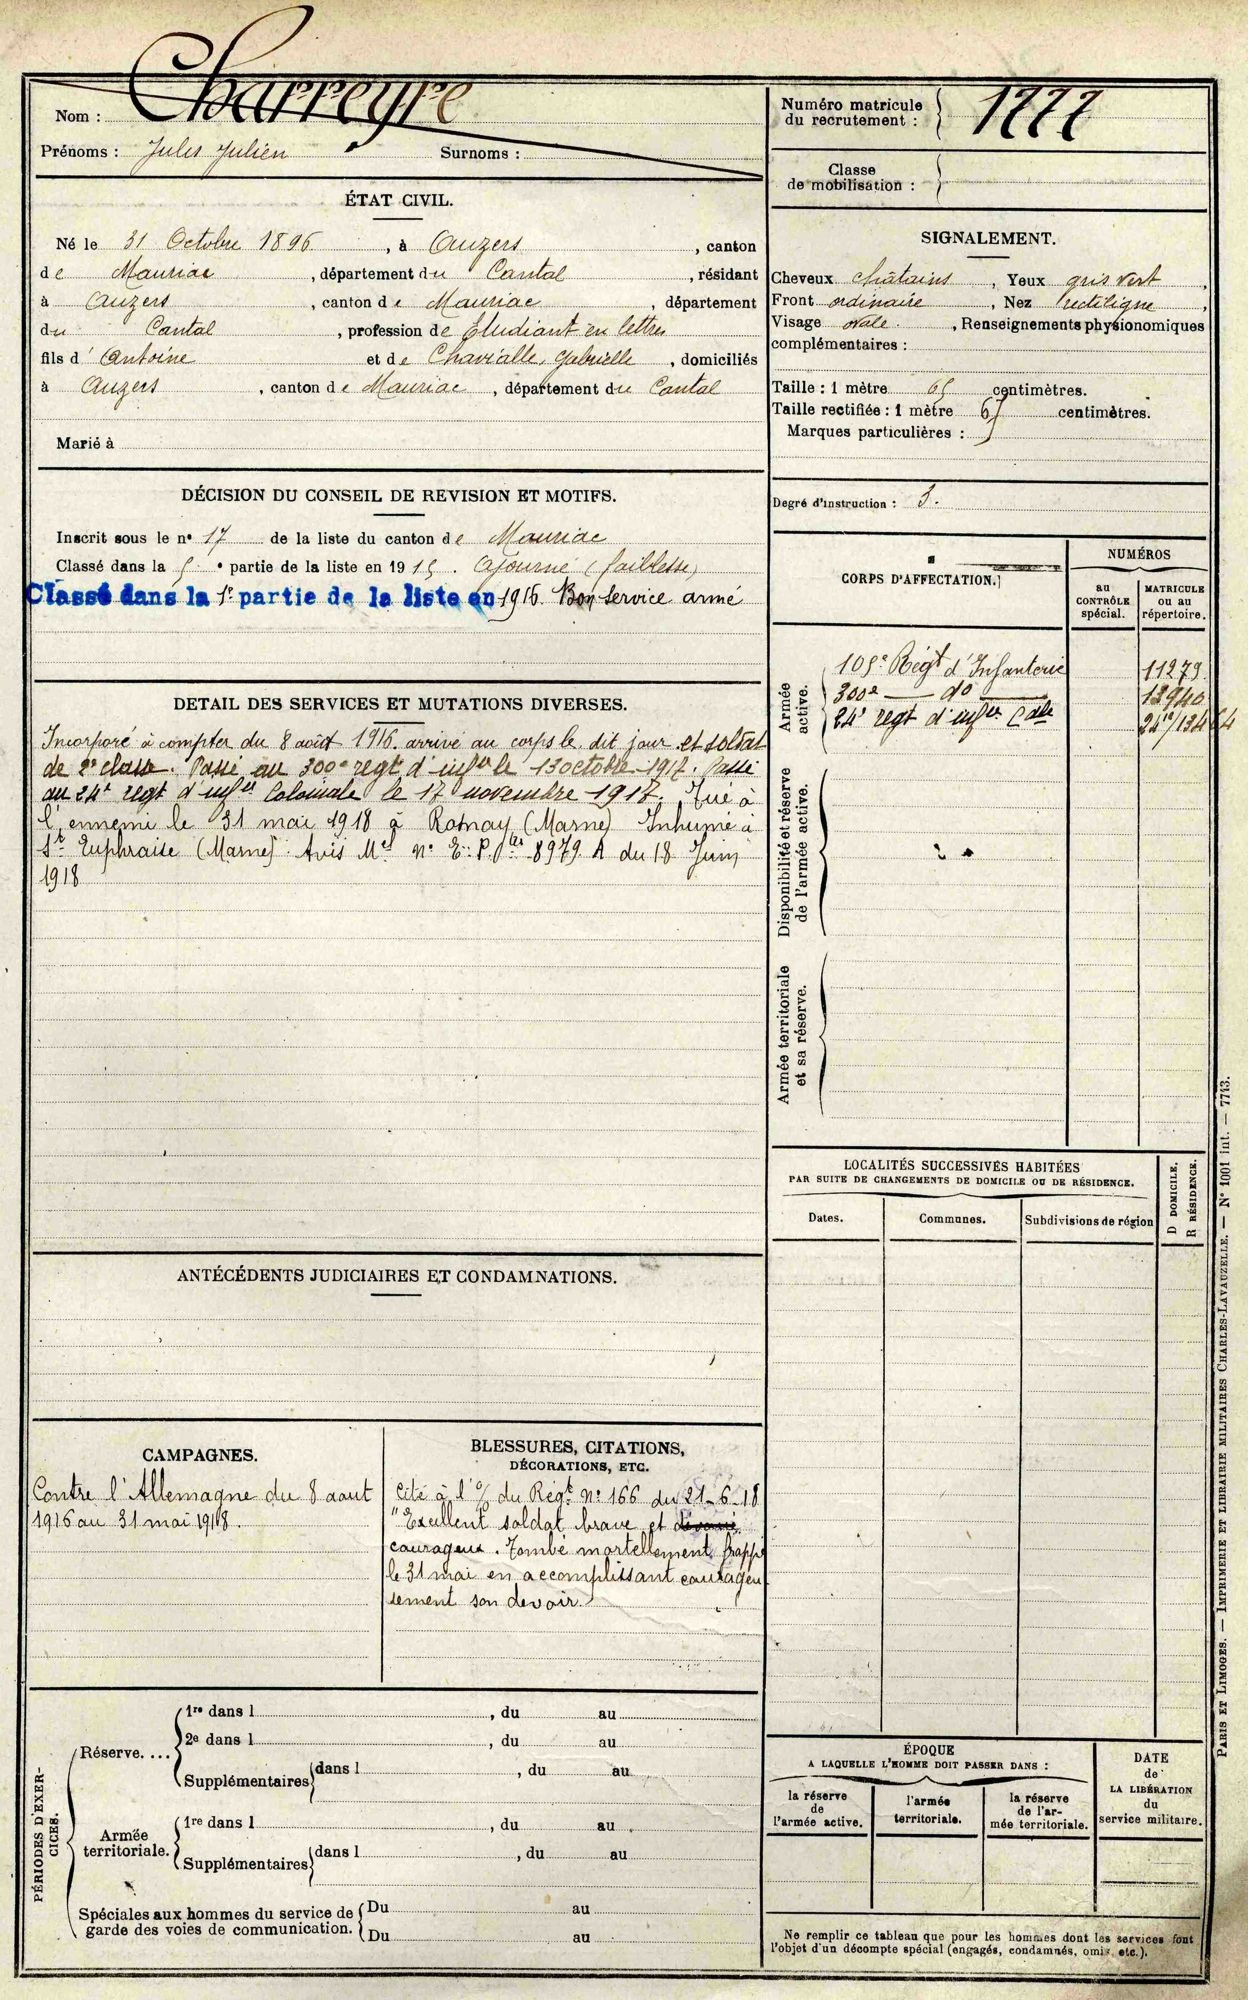 Nom : Charreyre
Prénoms : Jules Julien Surnoms :
Numéro matricule
du recrutement : 1777
Classe
de mobilisation :
ÉTAT CIVIL.
Né le 31 Octobre 1896, à Auzers, canton
de Mauriac, département du Cantal, résidant
à Auzers, canton de Mauriac, département
du Cantal, profession de Etudiant en lettres
fils d'Antoine et de Chavialle, Gabrielle, domiciliés
à Auzers, canton de Mauriac, département du Cantal
Marié à
SIGNALEMENT.
Cheveux châtains, Yeux gris vert,
Front ordinaire, Nez rectiligne,
Visage ovale, Renseignements physionomiques
complémentaires :
Taille : 1 mètre 65 centimètres.
Taille rectifiée : 1 mètre 65 centimètres.
Marques particulières :
Degré d'instruction : 3.
DÉCISION DU CONSEIL DE REVISION ET MOTIFS.
Inscrit sous le nº 17 de la liste du canton de Mauriac
Classé dans la 5e partie de la liste en 1915. Ajourné (faiblesse)
Classé dans la 1e partie de la liste en 1916. Bon service armé
DÉTAIL DES SERVICES ET MUTATIONS DIVERSES.
Incorporé à compter du 8 août 1916. arrivé au corps le dit jour et soldat
de 2e classe. Passé au 300e regt d'infie le 13 octobre 1917. Passé
au 24e regt d'infie Coloniale le 17 novembre 1917. Tué à
l'ennemi le 31 mai 1918 à Rosnay (Marne) Inhumé à
Ste Euphraise (Marne). Avis Mel nº E.P. 8979 A du 18 Juin
1918
CORPS D'AFFECTATION.
NUMÉROS
au
CONTRÔLE
spécial.
MATRICULE
ou au
répertoire.
Armée
active.
105e Régt d'Infanterie 11279
300e — do — 12940
24e regt d'infie Cale
Disponibilité et réserve
de l'armée active.
Armée territoriale
et sa réserve.
LOCALITÉS SUCCESSIVES HABITÉES
PAR SUITE DE CHANGEMENTS DE DOMICILE OU DE RÉSIDENCE.
Dates.
Communes.
Subdivisions de région
D DOMICILE.
R RÉSIDENCE.
ANTÉCÉDENTS JUDICIAIRES ET CONDAMNATIONS.
CAMPAGNES.
Contre l'Allemagne du 8 aout
1916 au 31 mai 1918.
BLESSURES, CITATIONS,
DÉCORATIONS, ETC.
Cité à l'o/ du Régt Nº 166 du 21-6-18
"Excellent soldat brave et
courageux. Tombé mortellement frappé
le 31 mai en accomplissant courageu
sement son devoir.
PÉRIODES D'EXER-
CICES.
Réserve....
1re dans l , du au
2e dans l , du au
Supplémentaires dans l , du au
Armée
territoriale.
1re dans l , du au
Supplémentaires dans l , du au
Spéciales aux hommes du service de
garde des voies de communication.
Du au
Du au
ÉPOQUE
A LAQUELLE L'HOMME DOIT PASSER DANS :
la réserve
de
l'armée active.
l'armée
territoriale.
la réserve
de l'ar-
mée territoriale.
DATE
de
LA LIBÉRATION
du
service militaire.
Ne remplir ce tableau que pour les hommes dont les services font
l'objet d'un décompte spécial (engagés, condamnés, omis, etc.).
PARIS ET LIMOGES. — IMPRIMERIE ET LIBRAIRIE MILITAIRES CHARLES-LAVAUZELLE. — Nº 1001 int. — 7743.